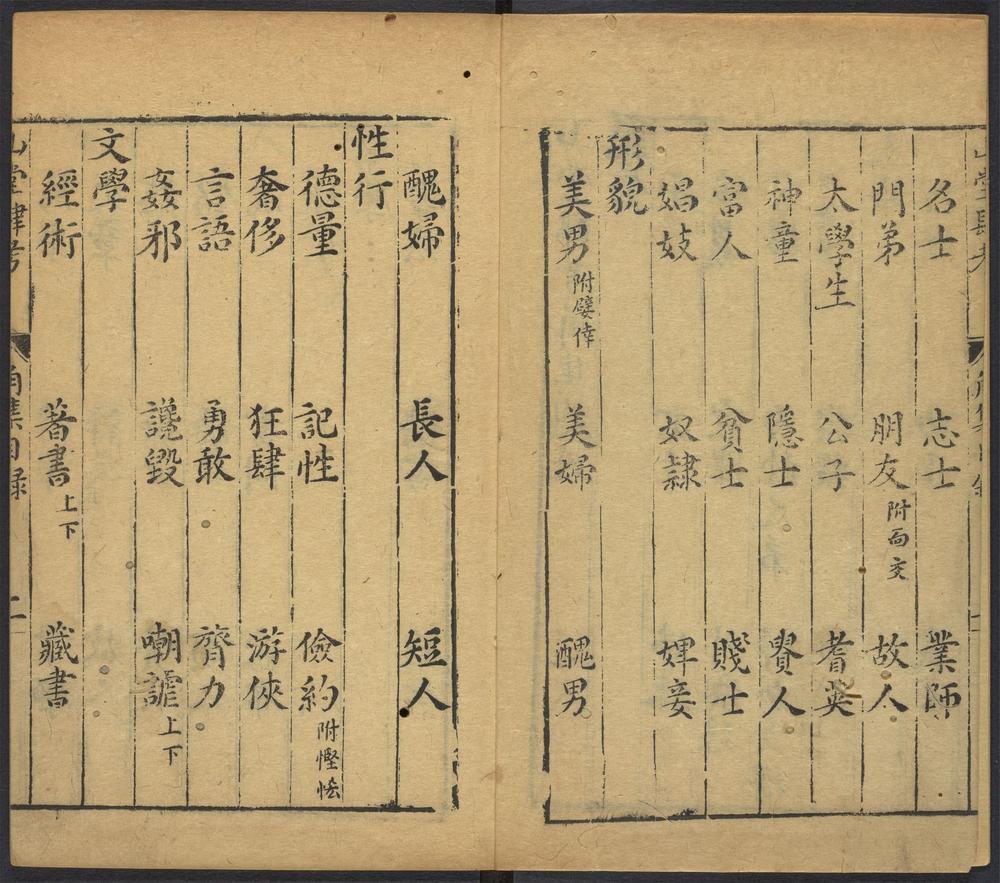 名士 志士 業師
門弟 朋友 附面交 故人
太學生 公子 耆英
神童 隱士 貴人
富人 貧士 賤士
娼妓 奴隸 婢妾
形貌
美男 附嬖倖 美婦 醜男
醜婦 長人 短人
性行
德量 記性 儉約 附慳悋
奢侈 狂肆 游俠
言語 勇敢 齊力
姦邪 讒毀 嘲謔 上下
文學
經術 著書 上下 藏書
山堂肆考 角集目錄 二